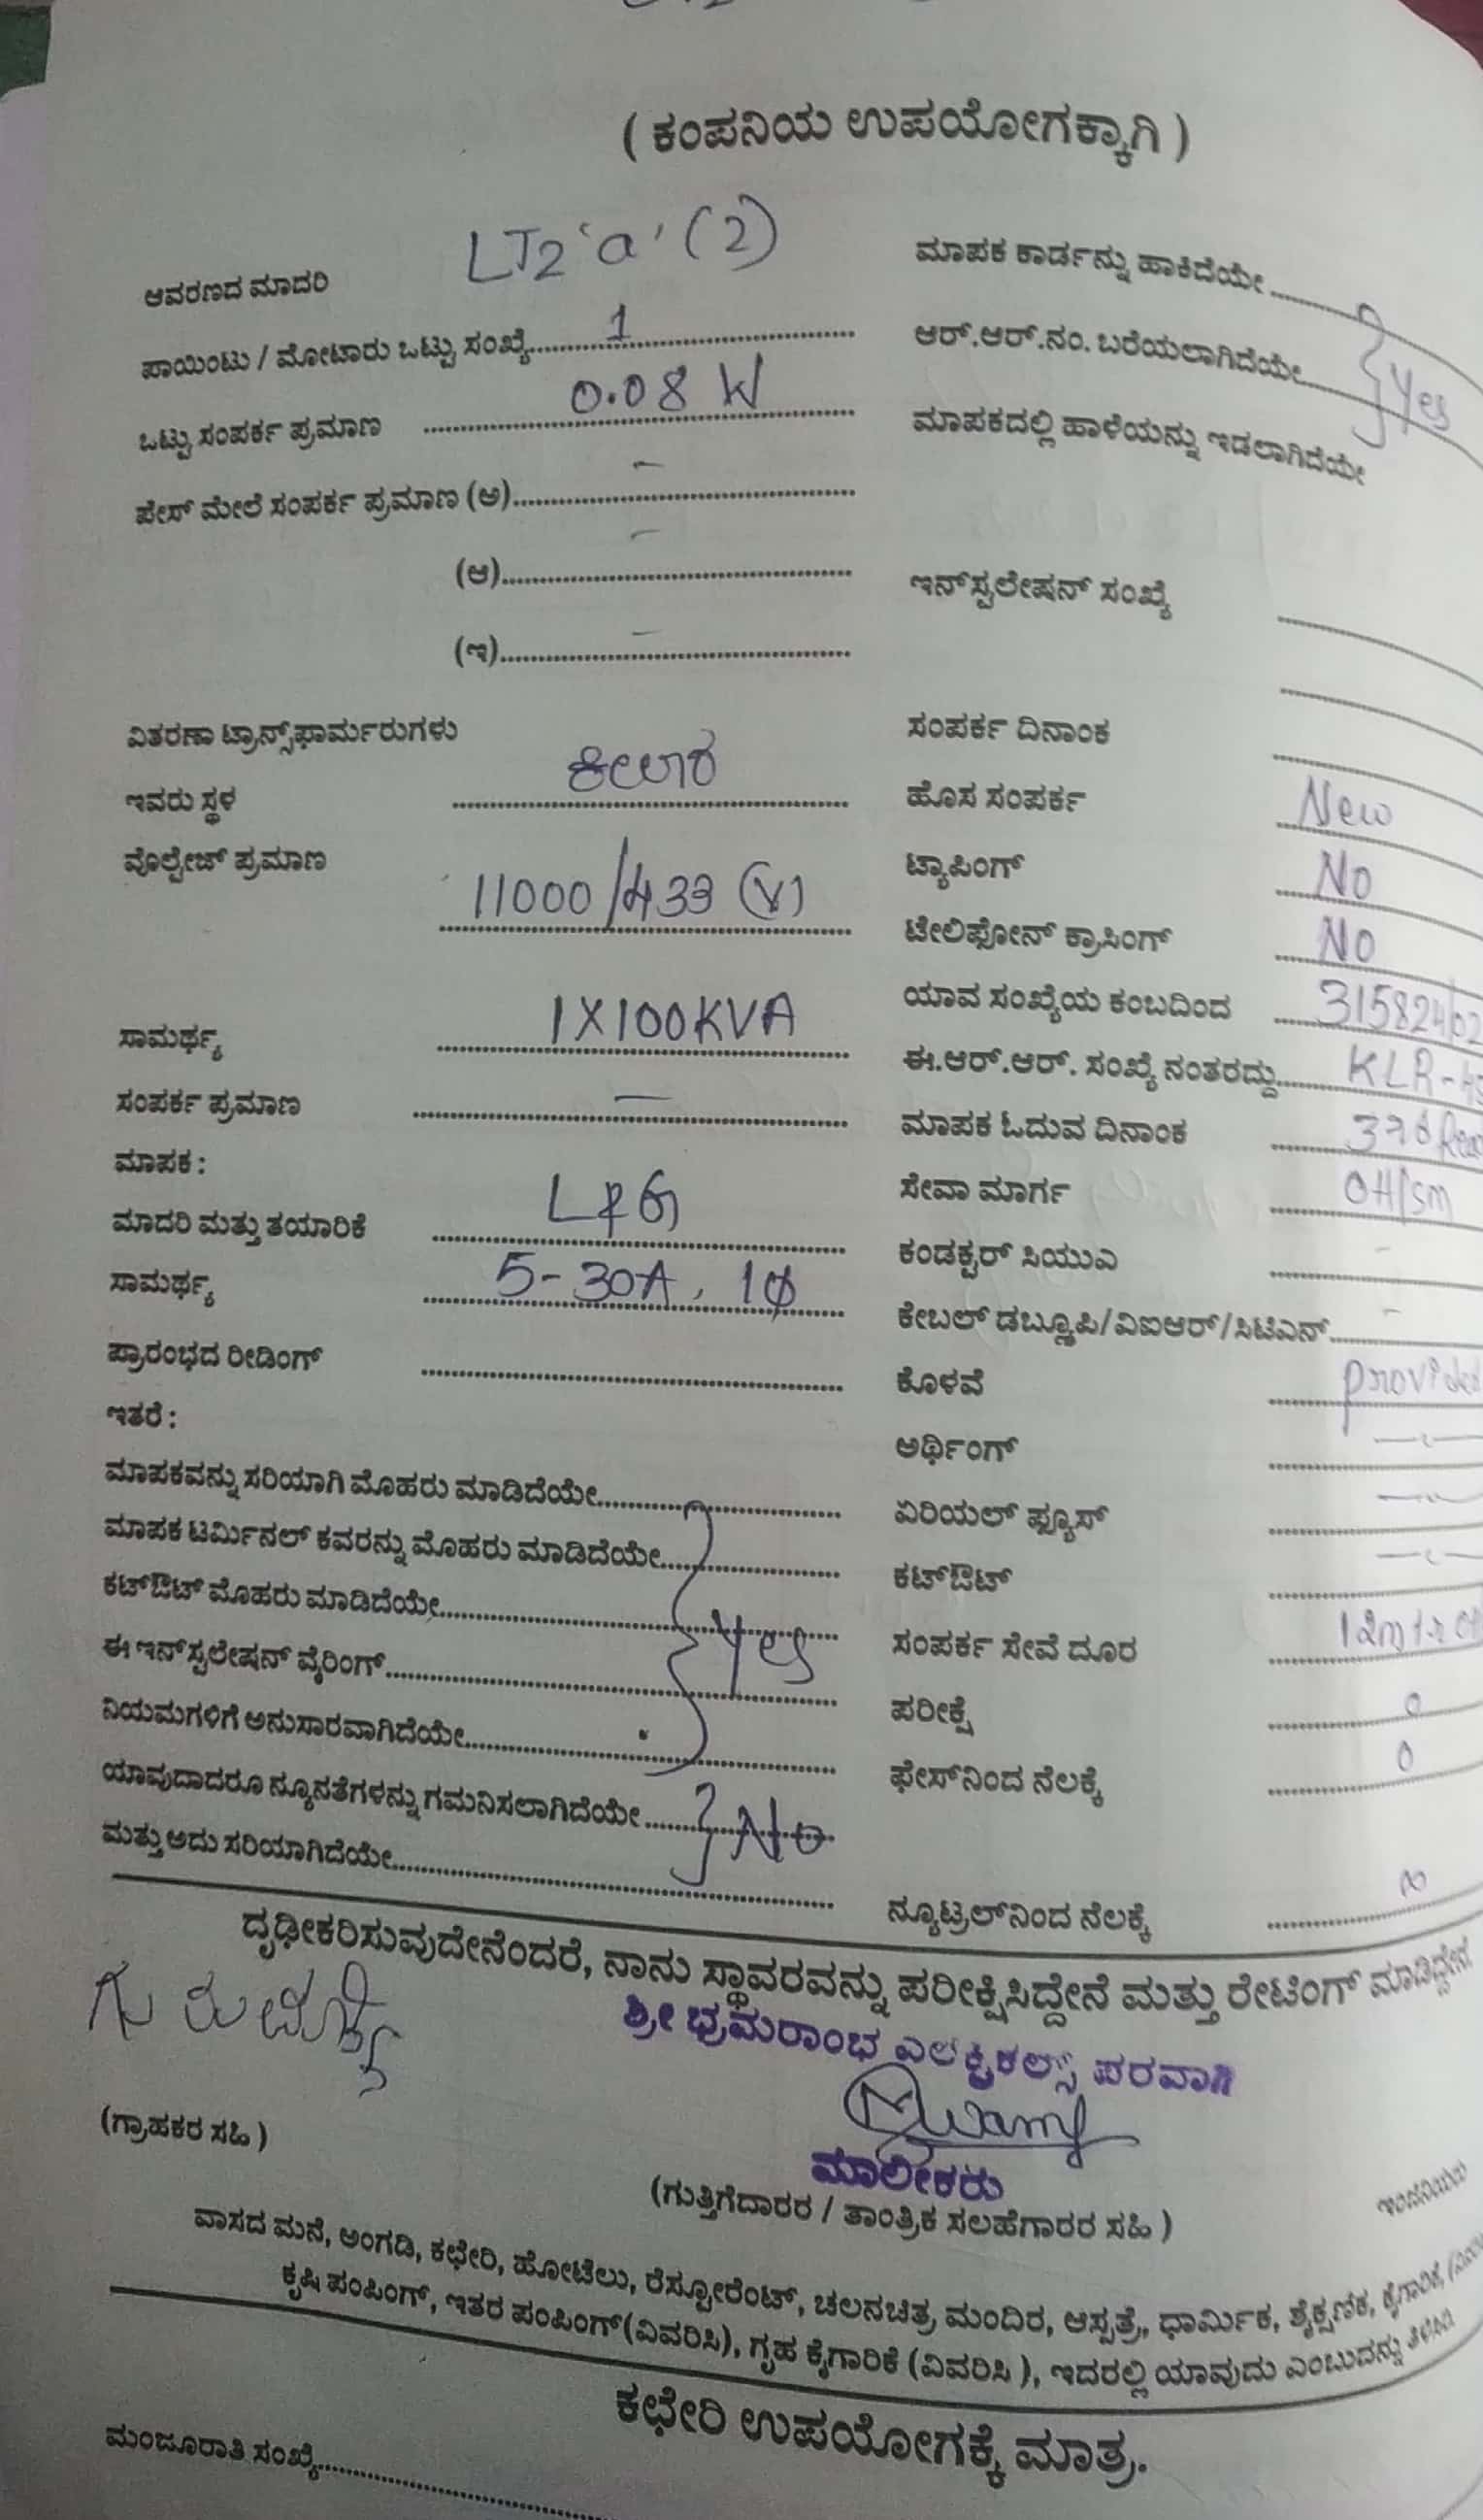 ( ಕಂಪನಿಯ ಉಪಯೋಗಕ್ಕಾಗಿ )
ಆವರಣದ ಮಾದರಿ LT2 'a' (2)
ಪಾಯಿಂಟು / ಮೋಟಾರು ಒಟ್ಟು ಸಂಖ್ಯೆ 1
ಒಟ್ಟು ಸಂಪರ್ಕ ಪ್ರಮಾಣ 0.08 W
ಪೇಸ್ ಮೇಲೆ ಸಂಪರ್ಕ ಪ್ರಮಾಣ (ಅ) –
(ಆ) –
(ಇ) –
ವಿತರಣಾ ಟ್ರಾನ್ಸ್‌ಫಾರ್ಮರುಗಳು
ಇವರು ಸ್ಥಳ ಕೀಲಾರ
ವೊಲ್ಟೇಜ್ ಪ್ರಮಾಣ 11000/433 (V)
ಸಾಮರ್ಥ್ಯ 1X100KVA
ಸಂಪರ್ಕ ಪ್ರಮಾಣ –
ಮಾಪಕ :
ಮಾದರಿ ಮತ್ತು ತಯಾರಿಕೆ L&G
ಸಾಮರ್ಥ್ಯ 5-30A, 1φ
ಪ್ರಾರಂಭದ ರೀಡಿಂಗ್
ಇತರೆ :
ಮಾಪಕವನ್ನು ಸರಿಯಾಗಿ ಮೊಹರು ಮಾಡಿದೆಯೇ
ಮಾಪಕ ಟರ್ಮಿನಲ್ ಕವರನ್ನು ಮೊಹರು ಮಾಡಿದೆಯೇ
ಕಟ್‌ಔಟ್ ಮೊಹರು ಮಾಡಿದೆಯೇ
ಈ ಇನ್‌ಸ್ಟಲೇಷನ್ ವೈರಿಂಗ್ Yes
ನಿಯಮಗಳಿಗೆ ಅನುಸಾರವಾಗಿದೆಯೇ
ಯಾವುದಾದರೂ ನ್ಯೂನತೆಗಳನ್ನು ಗಮನಿಸಲಾಗಿದೆಯೇ No
ಮತ್ತು ಅದು ಸರಿಯಾಗಿದೆಯೇ
ಮಾಪಕ ಕಾರ್ಡನ್ನು ಹಾಕಿದೆಯೇ
ಆರ್.ಆರ್.ನಂ. ಬರೆಯಲಾಗಿದೆಯೇ Yes
ಮಾಪಕದಲ್ಲಿ ಹಾಳೆಯನ್ನು ಇಡಲಾಗಿದೆಯೇ
ಇನ್‌ಸ್ಟಲೇಷನ್ ಸಂಖ್ಯೆ
ಸಂಪರ್ಕ ದಿನಾಂಕ
ಹೊಸ ಸಂಪರ್ಕ New
ಟ್ಯಾಪಿಂಗ್ No
ಟೇಲಿಫೋನ್ ಕ್ರಾಸಿಂಗ್ No
ಯಾವ ಸಂಖ್ಯೆಯ ಕಂಬದಿಂದ 315824/02
ಈ.ಆರ್.ಆರ್. ಸಂಖ್ಯೆ ನಂತರದ್ದು KLR-
ಮಾಪಕ ಓದುವ ದಿನಾಂಕ
ಸೇವಾ ಮಾರ್ಗ OH/SM
ಕಂಡಕ್ಟರ್ ಸಿಯುಎ –
ಕೇಬಲ್ ಡಬ್ಲ್ಯೂಪಿ/ವಿಐಆರ್/ಸಿಟಿಎನ್ –
ಕೊಳವೆ Provided
ಅರ್ಥಿಂಗ್
ಏರಿಯಲ್ ಫ್ಯೂಸ್
ಕಟ್‌ಔಟ್
ಸಂಪರ್ಕ ಸೇವೆ ದೂರ
ಪರೀಕ್ಷೆ 0
ಫೇಸ್‌ನಿಂದ ನೆಲಕ್ಕೆ 0
ನ್ಯೂಟ್ರಲ್‌ನಿಂದ ನೆಲಕ್ಕೆ
ದೃಢೀಕರಿಸುವುದೇನೆಂದರೆ, ನಾನು ಸ್ಥಾವರವನ್ನು ಪರೀಕ್ಷಿಸಿದ್ದೇನೆ ಮತ್ತು ರೇಟಿಂಗ್ ಮಾಡಿದ್ದೇನೆ.
ಶ್ರೀ ಭ್ರಮರಾಂಭ ಎಲೆಕ್ಟ್ರಿಕಲ್ಸ್ ಪರವಾಗಿ
ಮಾಲೀಕರು
(ಗ್ರಾಹಕರ ಸಹಿ )
(ಗುತ್ತಿಗೆದಾರರ / ತಾಂತ್ರಿಕ ಸಲಹೆಗಾರರ ಸಹಿ )
ವಾಸದ ಮನೆ, ಅಂಗಡಿ, ಕಛೇರಿ, ಹೋಟೆಲು, ರೆಸ್ಟೋರೆಂಟ್, ಚಲನಚಿತ್ರ ಮಂದಿರ, ಆಸ್ಪತ್ರೆ, ಧಾರ್ಮಿಕ, ಶೈಕ್ಷಣಿಕ, ಕೈಗಾರಿಕೆ,
ಕೃಷಿ ಪಂಪಿಂಗ್, ಇತರ ಪಂಪಿಂಗ್(ವಿವರಿಸಿ), ಗೃಹ ಕೈಗಾರಿಕೆ (ವಿವರಿಸಿ ), ಇದರಲ್ಲಿ ಯಾವುದು ಎಂಬುದನ್ನು ತಿಳಿಸಿ
ಕಛೇರಿ ಉಪಯೋಗಕ್ಕೆ ಮಾತ್ರ.
ಮಂಜೂರಾತಿ ಸಂಖ್ಯೆ